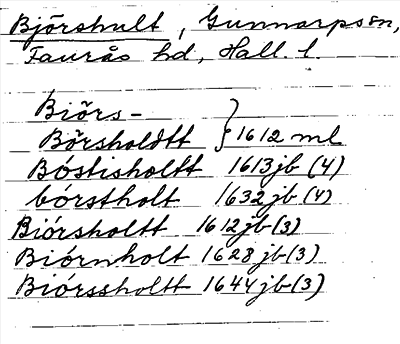 Bjōrshult, Gunnarps sn,
Faurås hd, Hall. l.
Biōrs- } 1612 ml
Bōrsholdtt
Bóstisholtt 1613 jb (4)
bórstholt 1632 jb (4)
Biórsholtt 1612 jb (3)
Biórnholt 1628 jb (3)
Biórssholtt 1644 jb (3)